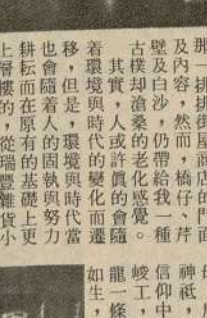 那一排排街屋商店的門面
及內容，然而，橋仔、芹
壁及白沙，仍帶給我一種
古樸却滄桑的老化感覺。
其實，人或許真的會隨
着環境與時代的變化而遷
移，但是，環境與時代當
也會隨着人的固執與努力
耕耘而在原有的基礎上更
上層樓的，從瑞豐雜貨小
神祇，
信仰中
峻工，
龍一條
如生，